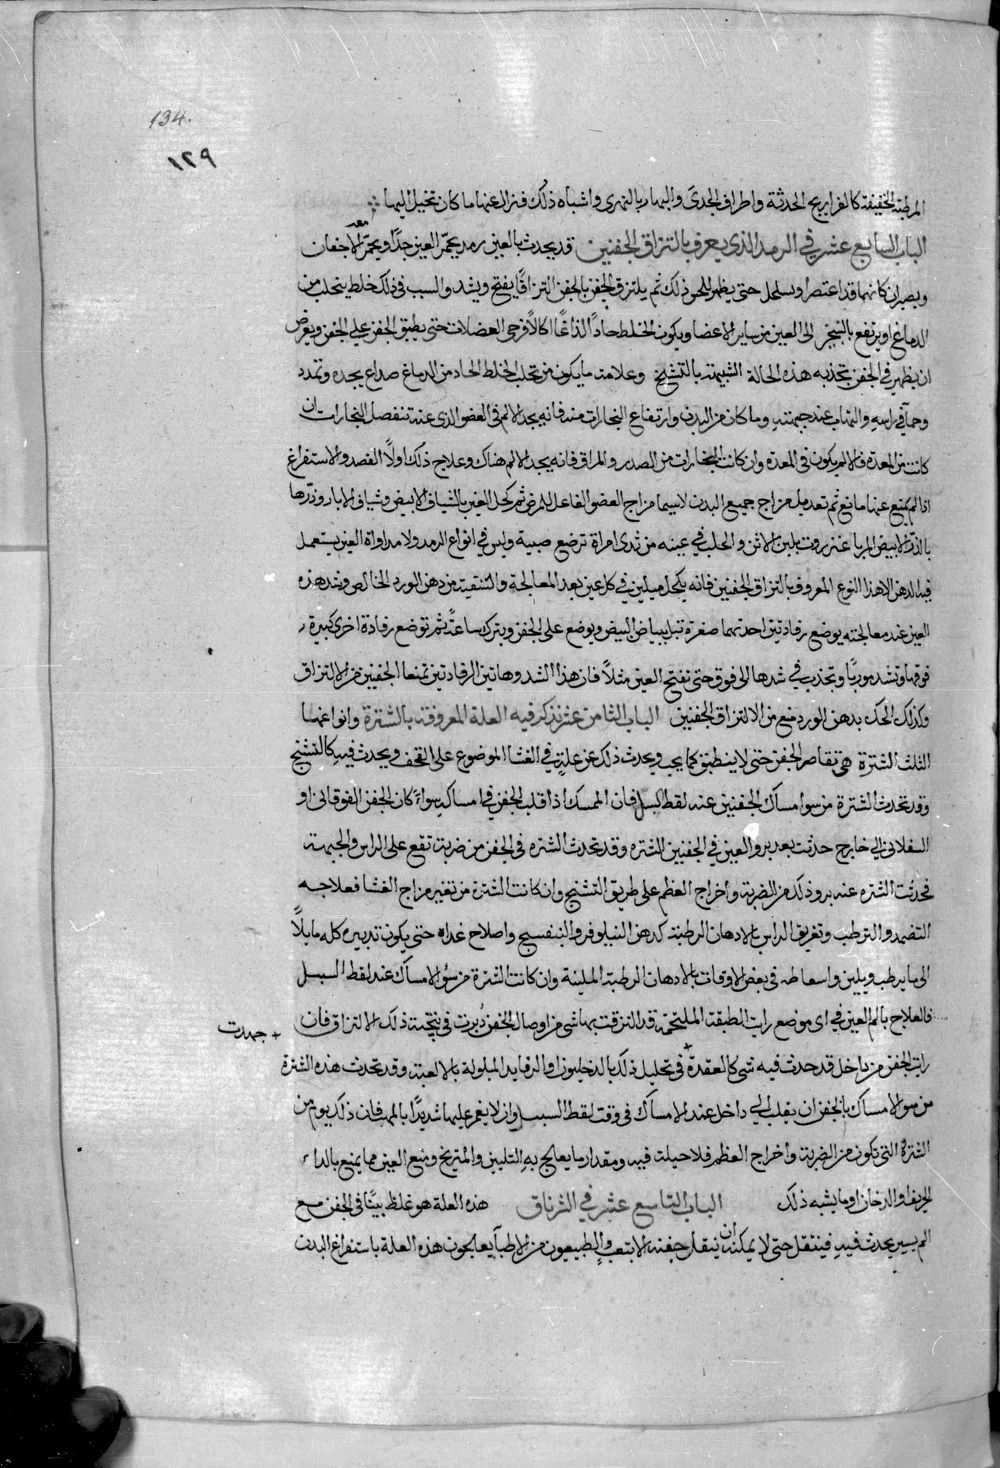 134.
١٢٩
المرطبة الخفيفة كالفراريج الحدثة واطراف الجدى والبهار بالتمرى واشباه ذلك فنزال عنها ما كان تخيل اليها
الباب السابع عشر في الرمد الذي يعرف بالتزاق الجفنين قد يحدث بالعين رمد يحمّر العين جدًا ويحمّر معه الاجفان
ويصيران كانهما قد اعتصرا ويسلمل حتى يظهر اللحم وذلك ثم يلتزق الجفن بالجفن التزاقًا يفتح ويشد والسبب في ذلك خلط ينجلب من
الدماغ او يرتفع بالتبخر الى العين من ساير الاعضا ويكون الخلط حادًا لذاعًا اكالًا فرحى العضلات حتى يطبق الجفن على الجفن ويعرض
ان يظهر في الجفن بتجذبه هذه الحالة الشبيهة بالتشنج وعلامة ما يكون من تحلب الخلط الحاد من الدماغ صداع يجده وتمدد
وحمآ في راسه والتهاب عند جبهته وما كان من البدن وارتفاع البخارات منه فانه يجد الالم في العضو الذى عنه تنفصل البخارات ان
كانت من المعدة فالالم يكون في المعدة وان كانت البخارات من الصدر والمراق فانه يجد الالم هناك وعلاج ذلك اولًا الفصد والاستفراغ
اذا لم يمنع عنهما مانع ثم تعديل مزاج جميع البدن لاسيما مزاج العضو الفاعل للمرض ثم كحل العين بالشياف الابيض وشياف الابار وذرّها
بالذرّ الابيض المربا عنزروت بلبن الاتن والحلب في عينه من ثدى امراة ترضع صبية وليس في انواع الرمد ولا مداواة العين يستعمل
فيه الدهن الا هذا النوع المعروف بالتزاق الجفنين فانه يكحل ميلين في كل عين بعد المعالجة والتنقية من دهن الورد الخالص وتشد هذه
العين عند معالجته يوضع رفادتين احدتهما صغرة تبل ببياض البيض ويوضع على الجفن ويترك ساعةً ثم توضع رفادة اخرى كبيرة
فوقها وتشد موربًا وتجذب في شدها الى فوق حتى تفتح العين مثلًا فان هذا الشد وهاتين الرفادتين تمنعا الجفنين من الالتزاق
وكذلك الحك بدهن الورد منع من الالتزاق الجفنين الباب الثامن عشر نذكر فيه العلة المعروفة بالشترة وانواعها
الثلث الشترة هي تقاصر الجفن حتى لا ينطبق كما يجب ويحدث ذلك عن علة في الغشا الموضوع على القحف ويحدث فيه كالتشنج
وقد تحدث الشترة من سوا مساك الجفنين عند لقط السبل فان الممسك اذا قلب الجفن في امساكه سواءً كان الجفن الفوقاني او
السفلاني الى خارج حدثت بعد برو العين في الجفنين الشتره وقد تحدث الشتره في الجفن من ضربة تقع على الراس والجبهة
فحدثت الشتره عند برو ذلك من الضربة واخراج العظم على طريق التشنج وان كانت الشترة من تغير مزاج الغشا فعلاجه
التضمد والترطب وتغريق الراس بالادهان الرطبة كدهن النيلوفر والبنفسج واصلاح غداه حتى يكون تدبيره كله مايلًا
الى ما يرطب ويلين واسعاطه في بعض الاوقات بالادهان الرطبة الملينة وان كانت الشترة من سؤ الامساك عند لقط السبل
فالعلاج بالم العين في اى موضع رايت الطبقة الملتحمة قد التزقت بها شى من اوصال الجفن دُبرت في تنحية ذلك الالتزاق فان
+ جهدت
رايت الجفن من داخل قد حدث فيه شى كالعقدة + في تحليل ذلك بالدخيلون او الرفايد المبلولة بالالعبة وقد تحدث هذه الشترة
من سو الامساك بالجفن ان يقلب الى داخل عند الامساك في وقت لقط السبل وان لا يغمر عليها شديدًا بالمهت فان ذلك يومن من
الشترة التى تكون من الضربة واخراج العظم فلا حيلة فيه ومقدار ما يعالج به التليين والمتريخ ومنع العين مما يمنع بالداء
الحريفة والدخان او ما يشبه ذلك الباب التاسع عشر في الشرناق هذه العلة هو غلظ بينًا في الجفن مع
الم يسير يحدث فيه فيتثقل حتى لا يمكنه ان ينقل جفنه الا بتعب والطبيعيون من الاطبآ يعالجون هذه العلة باستفراغ البدن